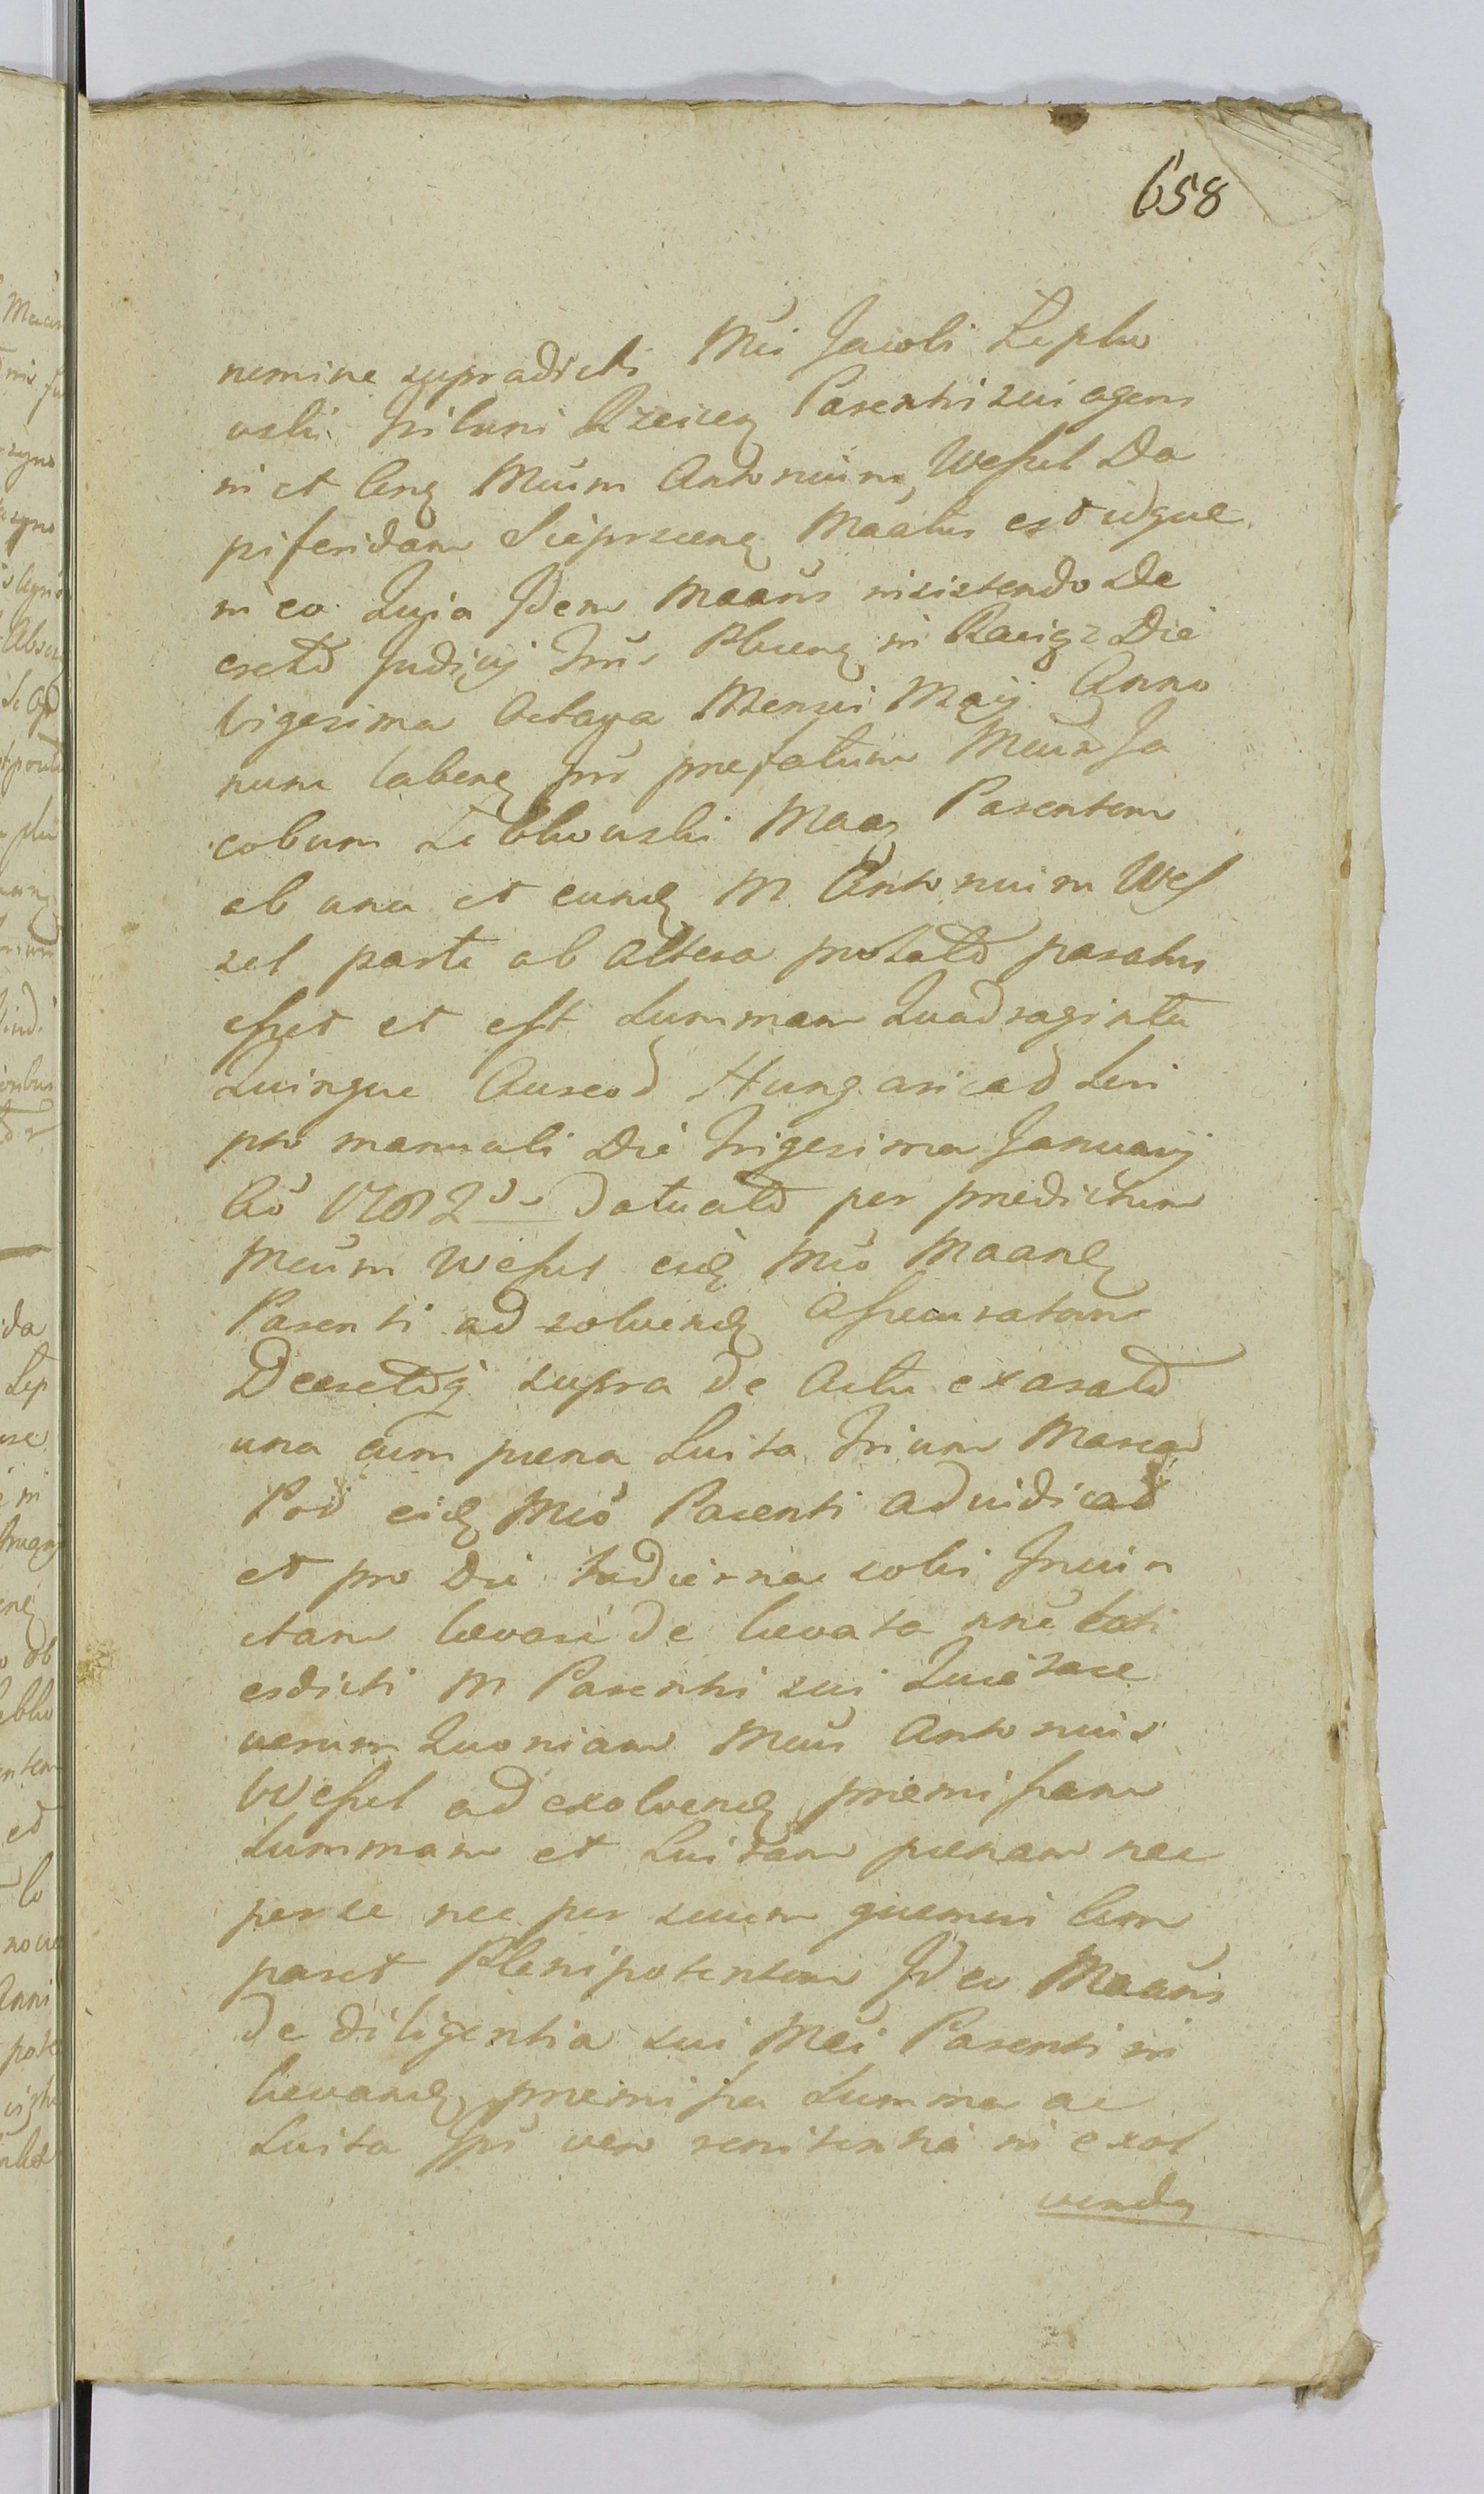 658
nomine supradicti Mci Jacobi Zepko
wski Tribuni Rzeczey Parentis sui agens
in et cong Mcum Antonium Wessel Da
piferidam Sieprscens Maatus est idque
in eo Quia Idem Maans insistendo De
creto Judicij Trus Plucens in Raciąz Die
Vigesima Octava Mensis Maij Anno
nunc labens inr prefatum Mcum Ja
cobum Zebkowski Maa Parentem
ab una et eund M. Antonium Wes
sel parte ab altera prolato paratus
esset et est Summam Quadraginta
Quinque Aureod Hungaricad Scri
pto manuali Die Trigesima Januarij
Ao 1782do datuato per predictum
Mcum Wessel eid Mco Maand
Parenti ad solvend Assecuratam
Decretoq supra de Actu exarato
una cum poena Luita Trium Marcar
Pod eid Mco Parenti adiudicad
et pro Die hodierna solvi Iniun
ctam levare de levata nne
erdicti M Parentis sui Quietare
verum Quoniam Mcus Antonius
Wessel ad exolvend premissam
Summam et Luitam poenam nec
per se nec per suum quemvis Com
paret Plenipotentem Ideo Maans
de diligentia sui Mci Parentis in
levand premissa Summa ac
Luita Ipi vero renitentia in exol
venda